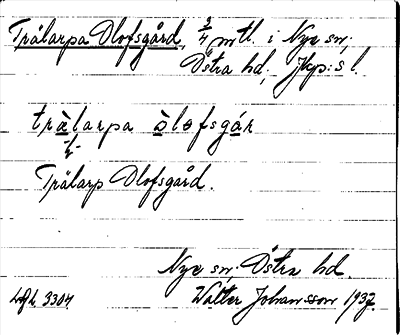 Trälarpa Olofsgård, 3/4 mtl. i Nye sn,
Östra hd, Jkp:s l.
träl​arpa òlofsgár
Trälarp Olofsgård.
Nye sn, Östra hd.
Lgh. 3304. Walter Johansson 1937.